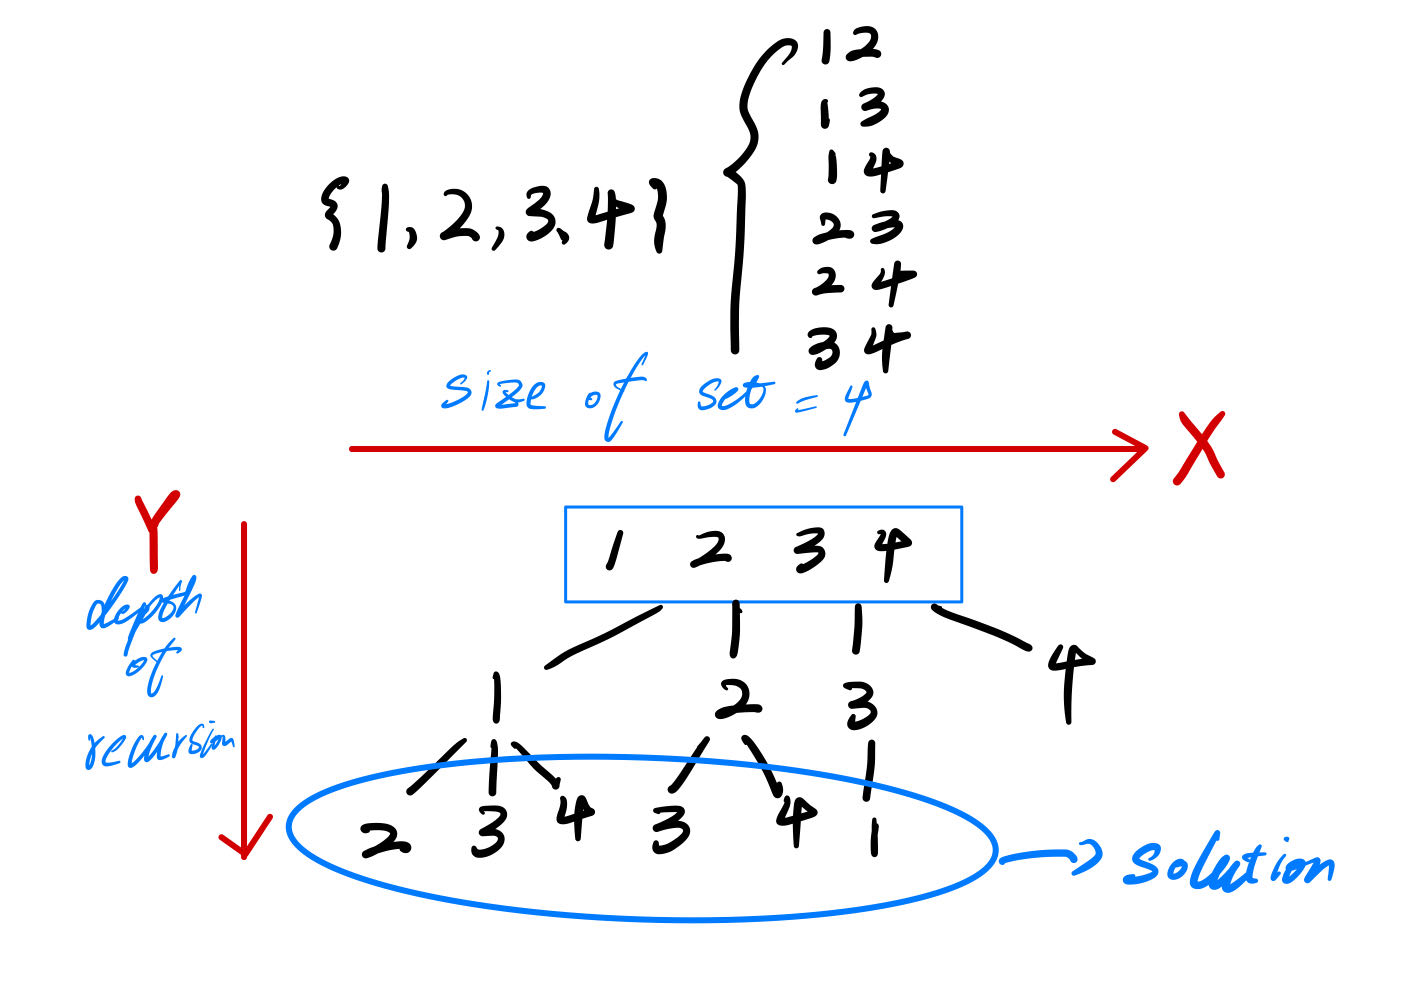 1 2
1 3
1 4
{1, 2, 3, 4}
2 3
2 4
3 4
size of set = 4
X
Y
depth
of
recursion
1 2 3 4
1 2 3 4
2 3 4 3 4 1
solution